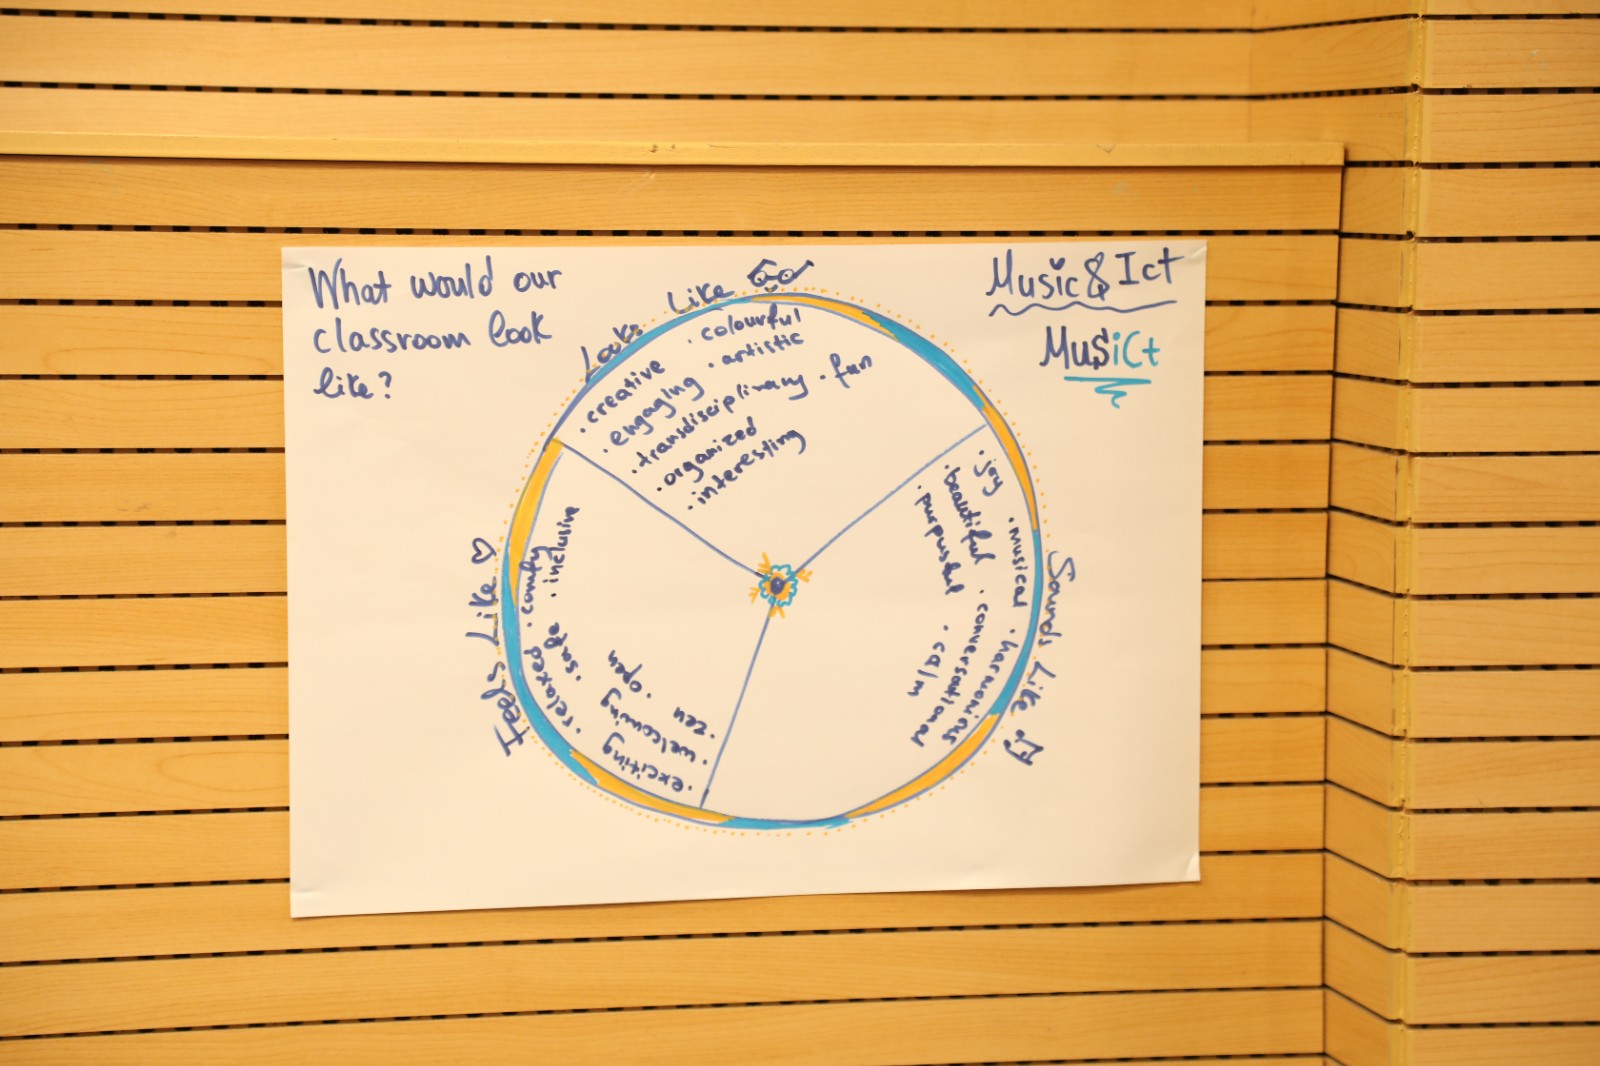 What would our
classroom look
like?
Music & Ict
MusiCt
Looks Like
· creative
· colourful
· engaging
· artistic
· transdisciplinary
· fun
· organized
· interesting
Sounds Like
· joy
· musical
· harmonious
· beautiful
· conversational
· purposful
· calm
Feels Like
· comfy
· inclusive
· relaxed
· safe
· open
· exciting
· welcoming
· zen